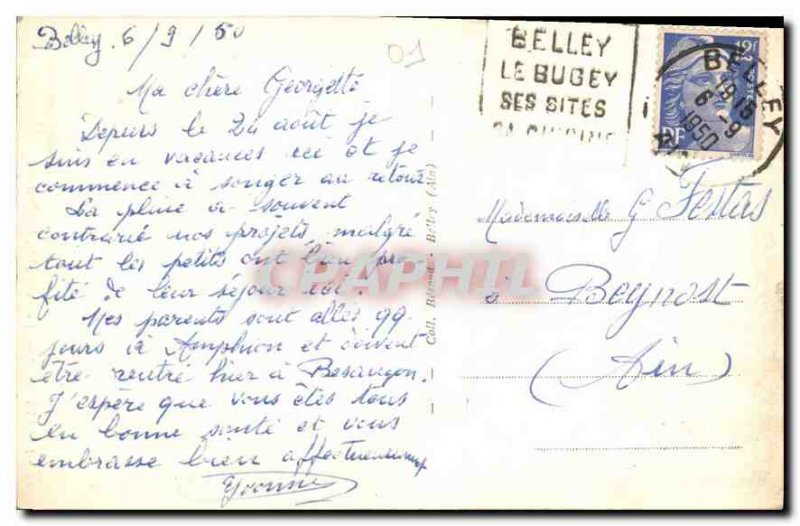 Belley 6/9/50
01
Ma chère Georgette
Depuis le 24 août je
suis en vacances ici et je
commence à songer au retour
La pluie a souvent
contrarié nos projets malgré
tout les petits ont bien pro
fité de leur séjour ici.
Mes parents sont allés qq
jours à Amphion et doivent
être rentré hier à Besançon.
J'espère que vous êtes tous
en bonne santé et vous
embrasse bien affectueusement
Yvonne
Coll. Belley (Ain)
BELLEY
LE BUGEY
SES SITES
SA CUISINE
12F
POSTES
RF
BELLEY
19 15
6 - 9
1950
Mademoiselle G Festas
à Beynost
(Ain)
CPAPHIL